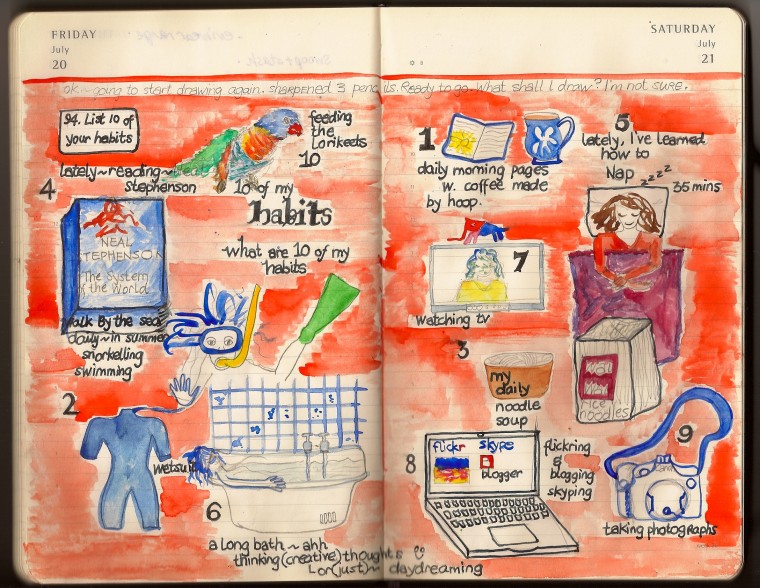 FRIDAY
July
20
ok ~ going to start drawing again. sharpened 3 pencils. Ready to go. What shall I draw? I'm not sure.
94. List 10 of
your habits
feeding
the
Lorikeets
10
lately ~ reading ~
Stephenson
4
10 of my
habits
~what are 10 of my
habits
NEAL
STEPHENSON
The System
of the World
Walk By the sea
daily ~ in summer
snorkelling
swimming
2
wetsuit
6
a long bath ~ ahh
thinking (creative) thoughts
~ or (just) ~ daydreaming
SATURDAY
July
21
1
daily morning pages
w. coffee made
by hoop.
5
lately, I've learned
how to
Nap zzzz
35 mins
7
watching tv
3
my
daily
noodle
soup
rice
noodles
8
flickr skype
blogger
flickring
&
blogging
skyping
9
taking photographs